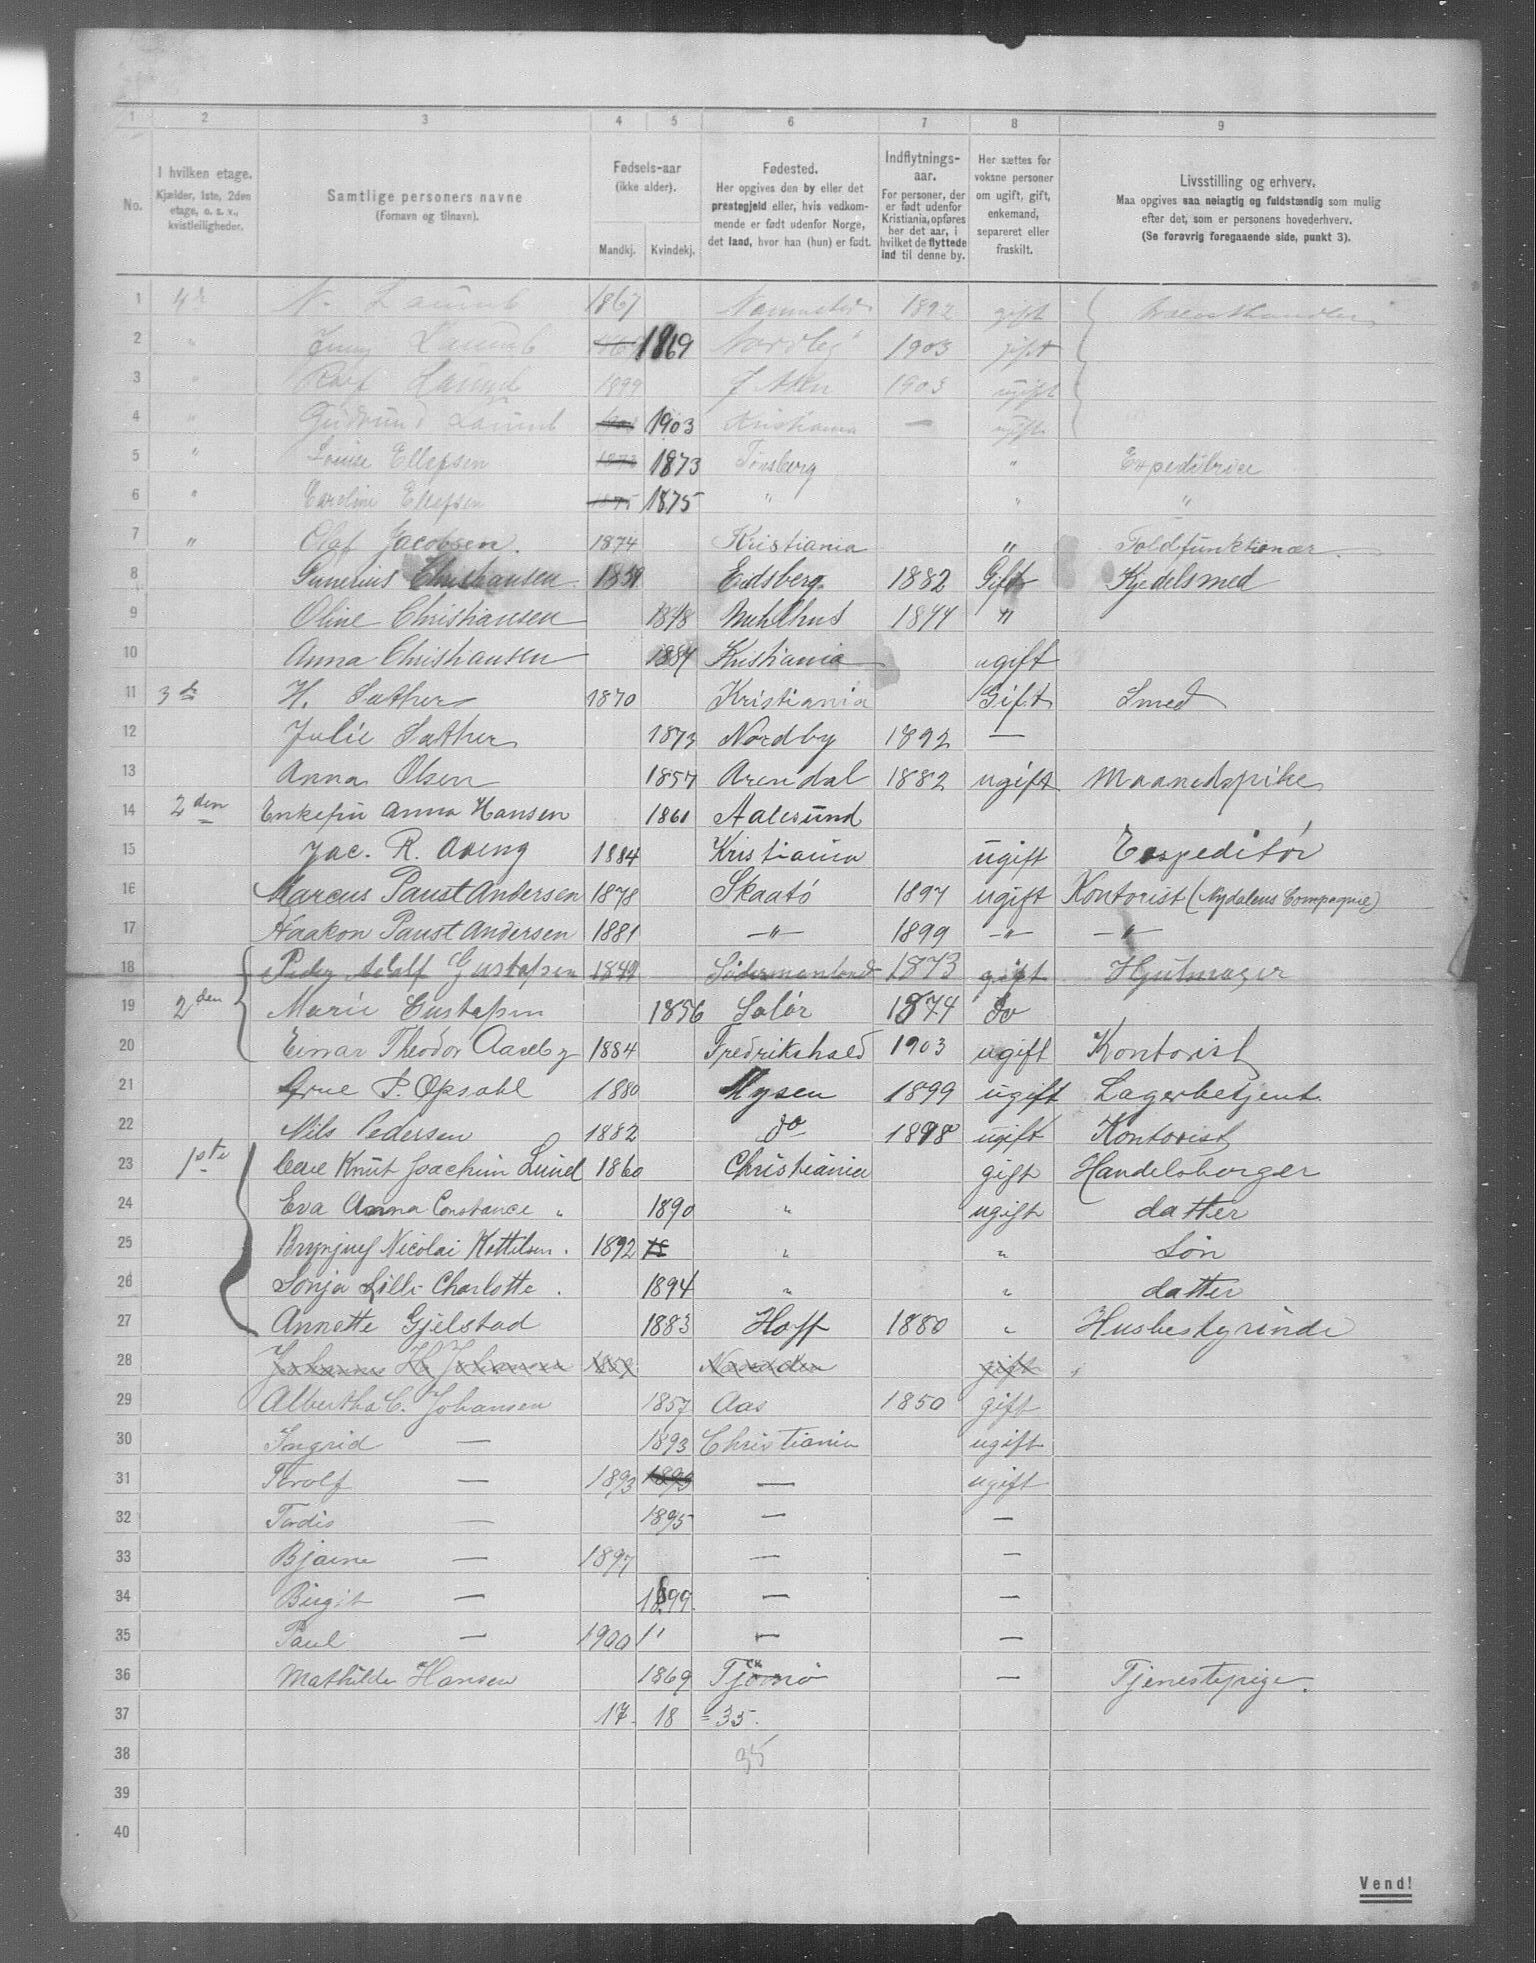 1 2 3 4 5 6 7 8 9
No.
I hvilken etage.
Kjælder, 1ste, 2den
etage, o. s. v.,
kvistleiligheder.
Samtlige personers navne
(Fornavn og tilnavn).
Fødsels-aar
(ikke alder).
Mandkj. Kvindekj.
Fødested.
Her opgives den by eller det
prestegjeld eller, hvis vedkom-
mende er født udenfor Norge,
det land, hvor han (hun) er født.
Indflytnings-
aar.
For personer, der
er født udenfor
Kristiania, opføres
her det aar, i
hvilket de flyttede
ind til denne by.
Her sættes for
voksne personer
om ugift, gift,
enkemand,
separeret eller
fraskilt.
Livsstilling og erhverv.
Maa opgives saa nøiagtig og fuldstændig som mulig
efter det, som er personens hovederhverv.
(Se forøvrig foregaaende side, punkt 3).
1 4de N. 1867 1892 gift
2 " Jenny 1869 Nordby 1903 gift
3 " Rolf 1899 1903 ugift
4 " Gudrun 1903 Kristiania — ugift
5 " Louise Ellefsen 1873 1873 Tønsberg " Expeditrice
6 " Caroline Ellefsen 1875 1875 " " "
7 " Olaf Jacobsen. 1874 Kristiania " Toldfunktionær
8 Gunerius Christiansen 1851 Eidsberg 1882 Gift Kjedelsmed
9 Oline Christiansen 1848 1877 "
10 Anna Christiansen 1884 Kristiania ugift
11 3de H. Sæther 1870 Kristiania Gift Smed
12 Julie Sæther 1873 Nordby 1892 —
13 Anna Olsen 1857 Arendal 1882 ugift Maanedspike
14 2den Enkefru Anna Hansen 1861 Aalesund
15 Jac. R. Aveng 1884 Kristiania ugift Expeditør
16 Marcus Paust Andersen 1878 Skaatö 1897 ugift Kontorist (Nydalens Compagnie)
17 Haakon Paust Andersen 1881 —"— 1899 —"— —"—
18 Peder Adolf Gustafsen 1849 Södermanland 1873 gift Hjulmager
19 2den Marie Gustafsen 1856 Solör 1874 do
20 Einar Theodor Aaseby 1884 Fredrikshald 1903 ugift Kontorist
21 Arne P. Opsahl 1880 Mysen 1899 ugift Lagerbetjent.
22 Nils Pedersen 1882 do 1898 ugift Kontorist
23 1ste Knut Joachim Lund 1860 Christiania gift Handelsborger
24 Eva Anna Constance " 1890 " ugift datter
25 Brynjulf Nicolai Kettilsen . 1892 18 " " Søn
26 Sonja Lilli Charlotte . 1894 " " datter
27 Annette Gjelstad 1883 Hoff 1880 " Husbestyrinde
28 Johannes H. Johansen gift
29 Albertha C. Johansen 1857 Aas 1850 gift
30 Ingrid — 1893 Christiania ugift
31 Trolf — 1893 1893 — ugift
32 Tordis — 1895 — —
33 Bjarne — 1897 — —
34 Birgit — 1899. — —
35 Paul — 1900 1' — —
36 Mathilde Hansen 1869 Tjømø — Tjenestepige.
37 17. 18 = 35.
38 35
39
40
Vend!